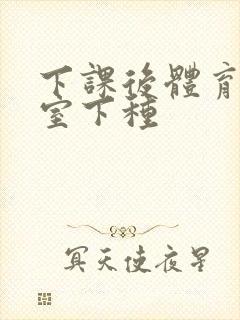 下課後體育
室下種
冥天使夜星